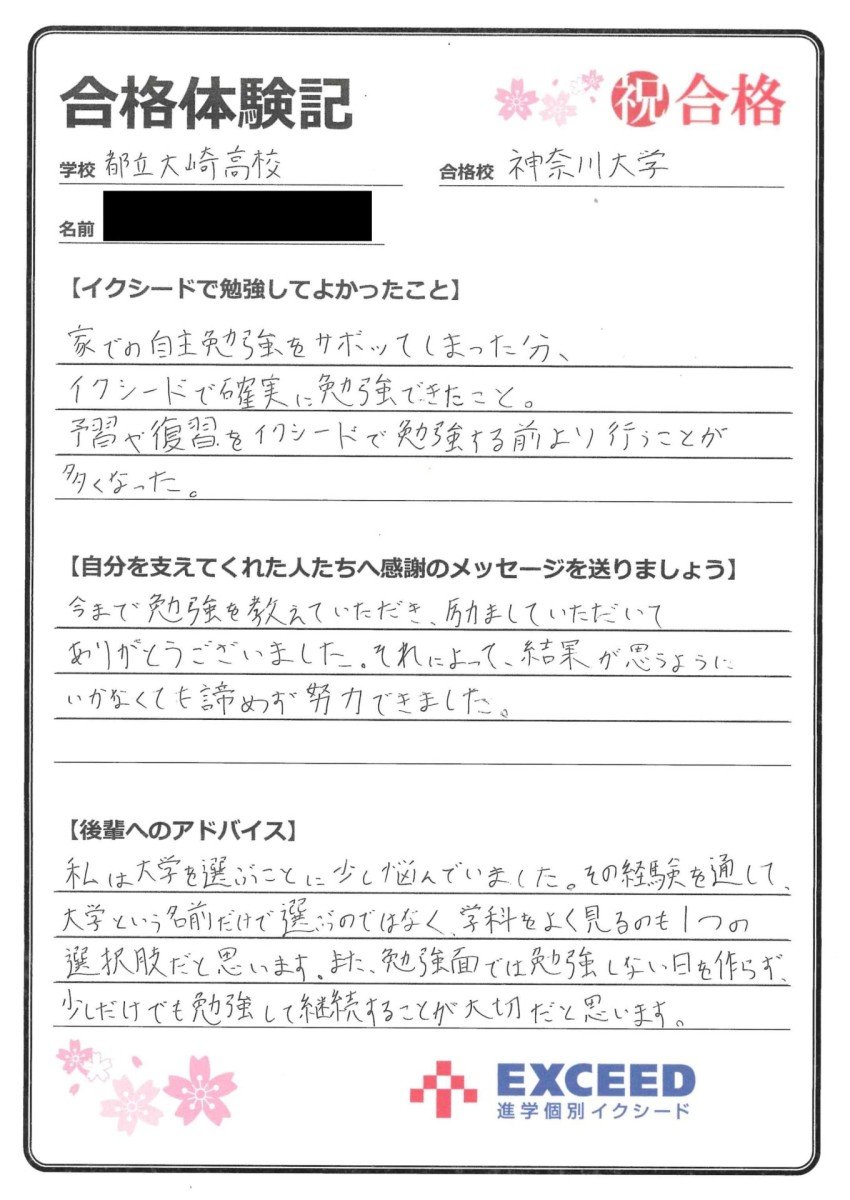 合格体験記
祝 合格
学校 都立大崎高校
合格校 神奈川大学
名前
【イクシードで勉強してよかったこと】
家での自主勉強をサボッてしまった分、
イクシードで確実に勉強できたこと。
予習や復習をイクシードで勉強する前より行うことが
多くなった。
【自分を支えてくれた人たちへ感謝のメッセージを送りましょう】
今まで勉強を教えていただき、励ましていただいて
ありがとうございました。それによって、結果が思うように
いかなくても諦めず努力できました。
【後輩へのアドバイス】
私は大学を選ぶことに少し悩んでいました。その経験を通して、
大学という名前だけで選ぶのではなく、学科をよく見るのも1つの
選択肢だと思います。また、勉強面では勉強しない日を作らず、
少しだけでも勉強して継続することが大切だと思います。
EXCEED
進学個別イクシード